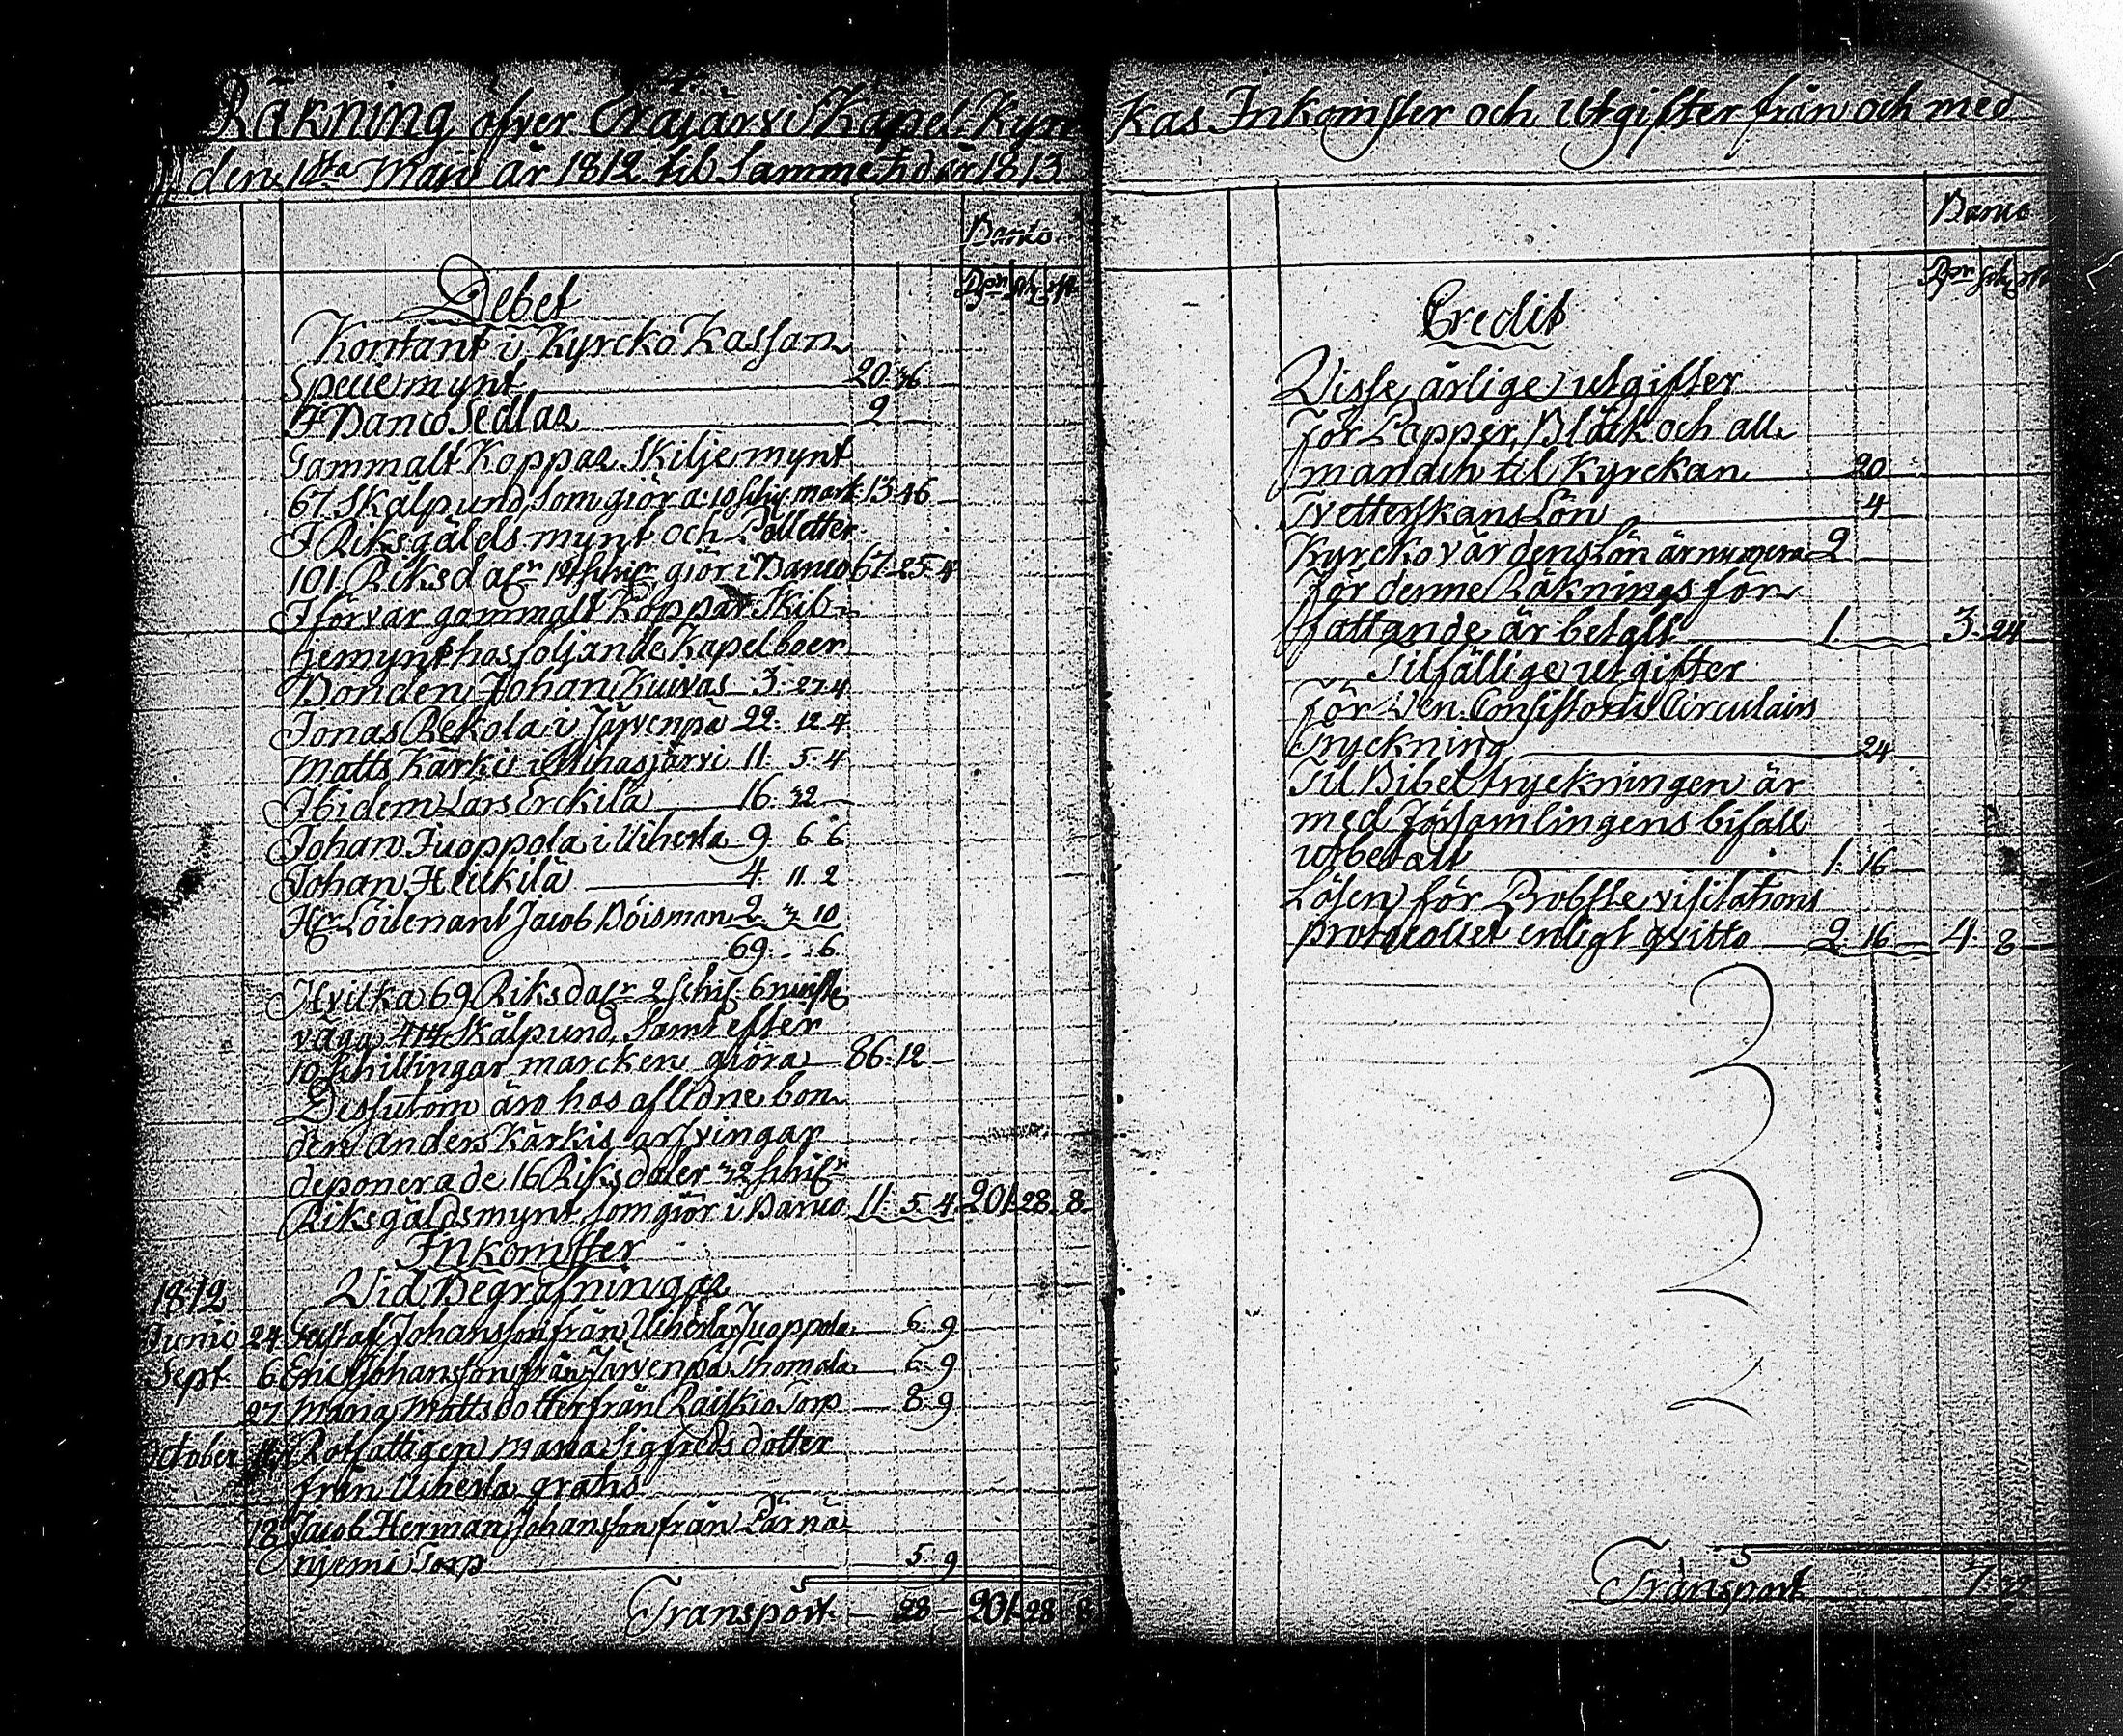 Räkning öfver Eräjärvi Kapel Kyr
den 1sta Maji år 1812 til samme tid år 1813
Banko
Rdr sk rst
Debet
Kontant i Kyrcko Kassan
Speciemynt 20. 36
I Banco Sedlar 2
Gammalt Koppar Skiljemynt
67 Skålpund, som giör a: 10 schill. mark 13. 46
I Riksgälds mynt och Polletter
101 Riksdaler 14 schill giör i Banco 67. 25. 4
I förvar gammalt Koppar Skil-
jemynt hos följande Kapelboer
Bonden Johan Kuivas 3. 27. 4
Jonas Rekola i Järvenpä 22. 12. 4
Matts Kärki i Uihasjärvi 11. 5. 4
Ibidem Lars Erckilä 16. 32
Johan Juoppola i Uiherla 9. 6. 6
Johan Heikkilä 4. 11. 2
Hr Löitenant Jacob Böisman 2. 3. 10
69. 6
Hvilka 69 Riksdaler 2 schill 6
väga 414 Skålpund, samt efter
10 schillingar marcken giöra 86. 12
Dessutom äro hos aflidne bon
den Anders Kärkis arfvingar
deponerade 16 Riksdaler 32 schill
Riksgäldsmynt, som giör i Banco 11. 5. 4 201. 28. 8
Inkomster
1812 Vid Begrafningar
Junii 24 Gustaf Johansson från Uiherla Juoppola 6. 9
Sept. 6 Eric Johansson från Järvenpä Thomola 6. 9
27 Maria Mattsdotter från Raiskio Torp 8. 9
October Rotfattigen Maria Sigfredsdotter
från Uiherla gratis
18 Jacob Herman Johansson från Pärnä
njemi Torp 5. 9
Transport 28 201. 28. 8
kas Inkomster och Utgifter från och med
Banco
Rdr sk rst
Credit
Visse årlige utgifter
För Papper, Bläck och all
manach til Kyrckan 20
Tvetterskans Lön 4
Kyrckovärdens Lön är numera 2
För denne Räknings för
fattande är betalt 1. 3. 24
Tilfällige utgifter
För Ven. Consistorii Circulairs
Tryckning 24
Til Bibel tryckningen är
med Församlingens bifall
utbetalt 1. 16
Lösen för Probste visitations
protocollet enligt qvitto 2. 16 4. 8
Transport 7. 32